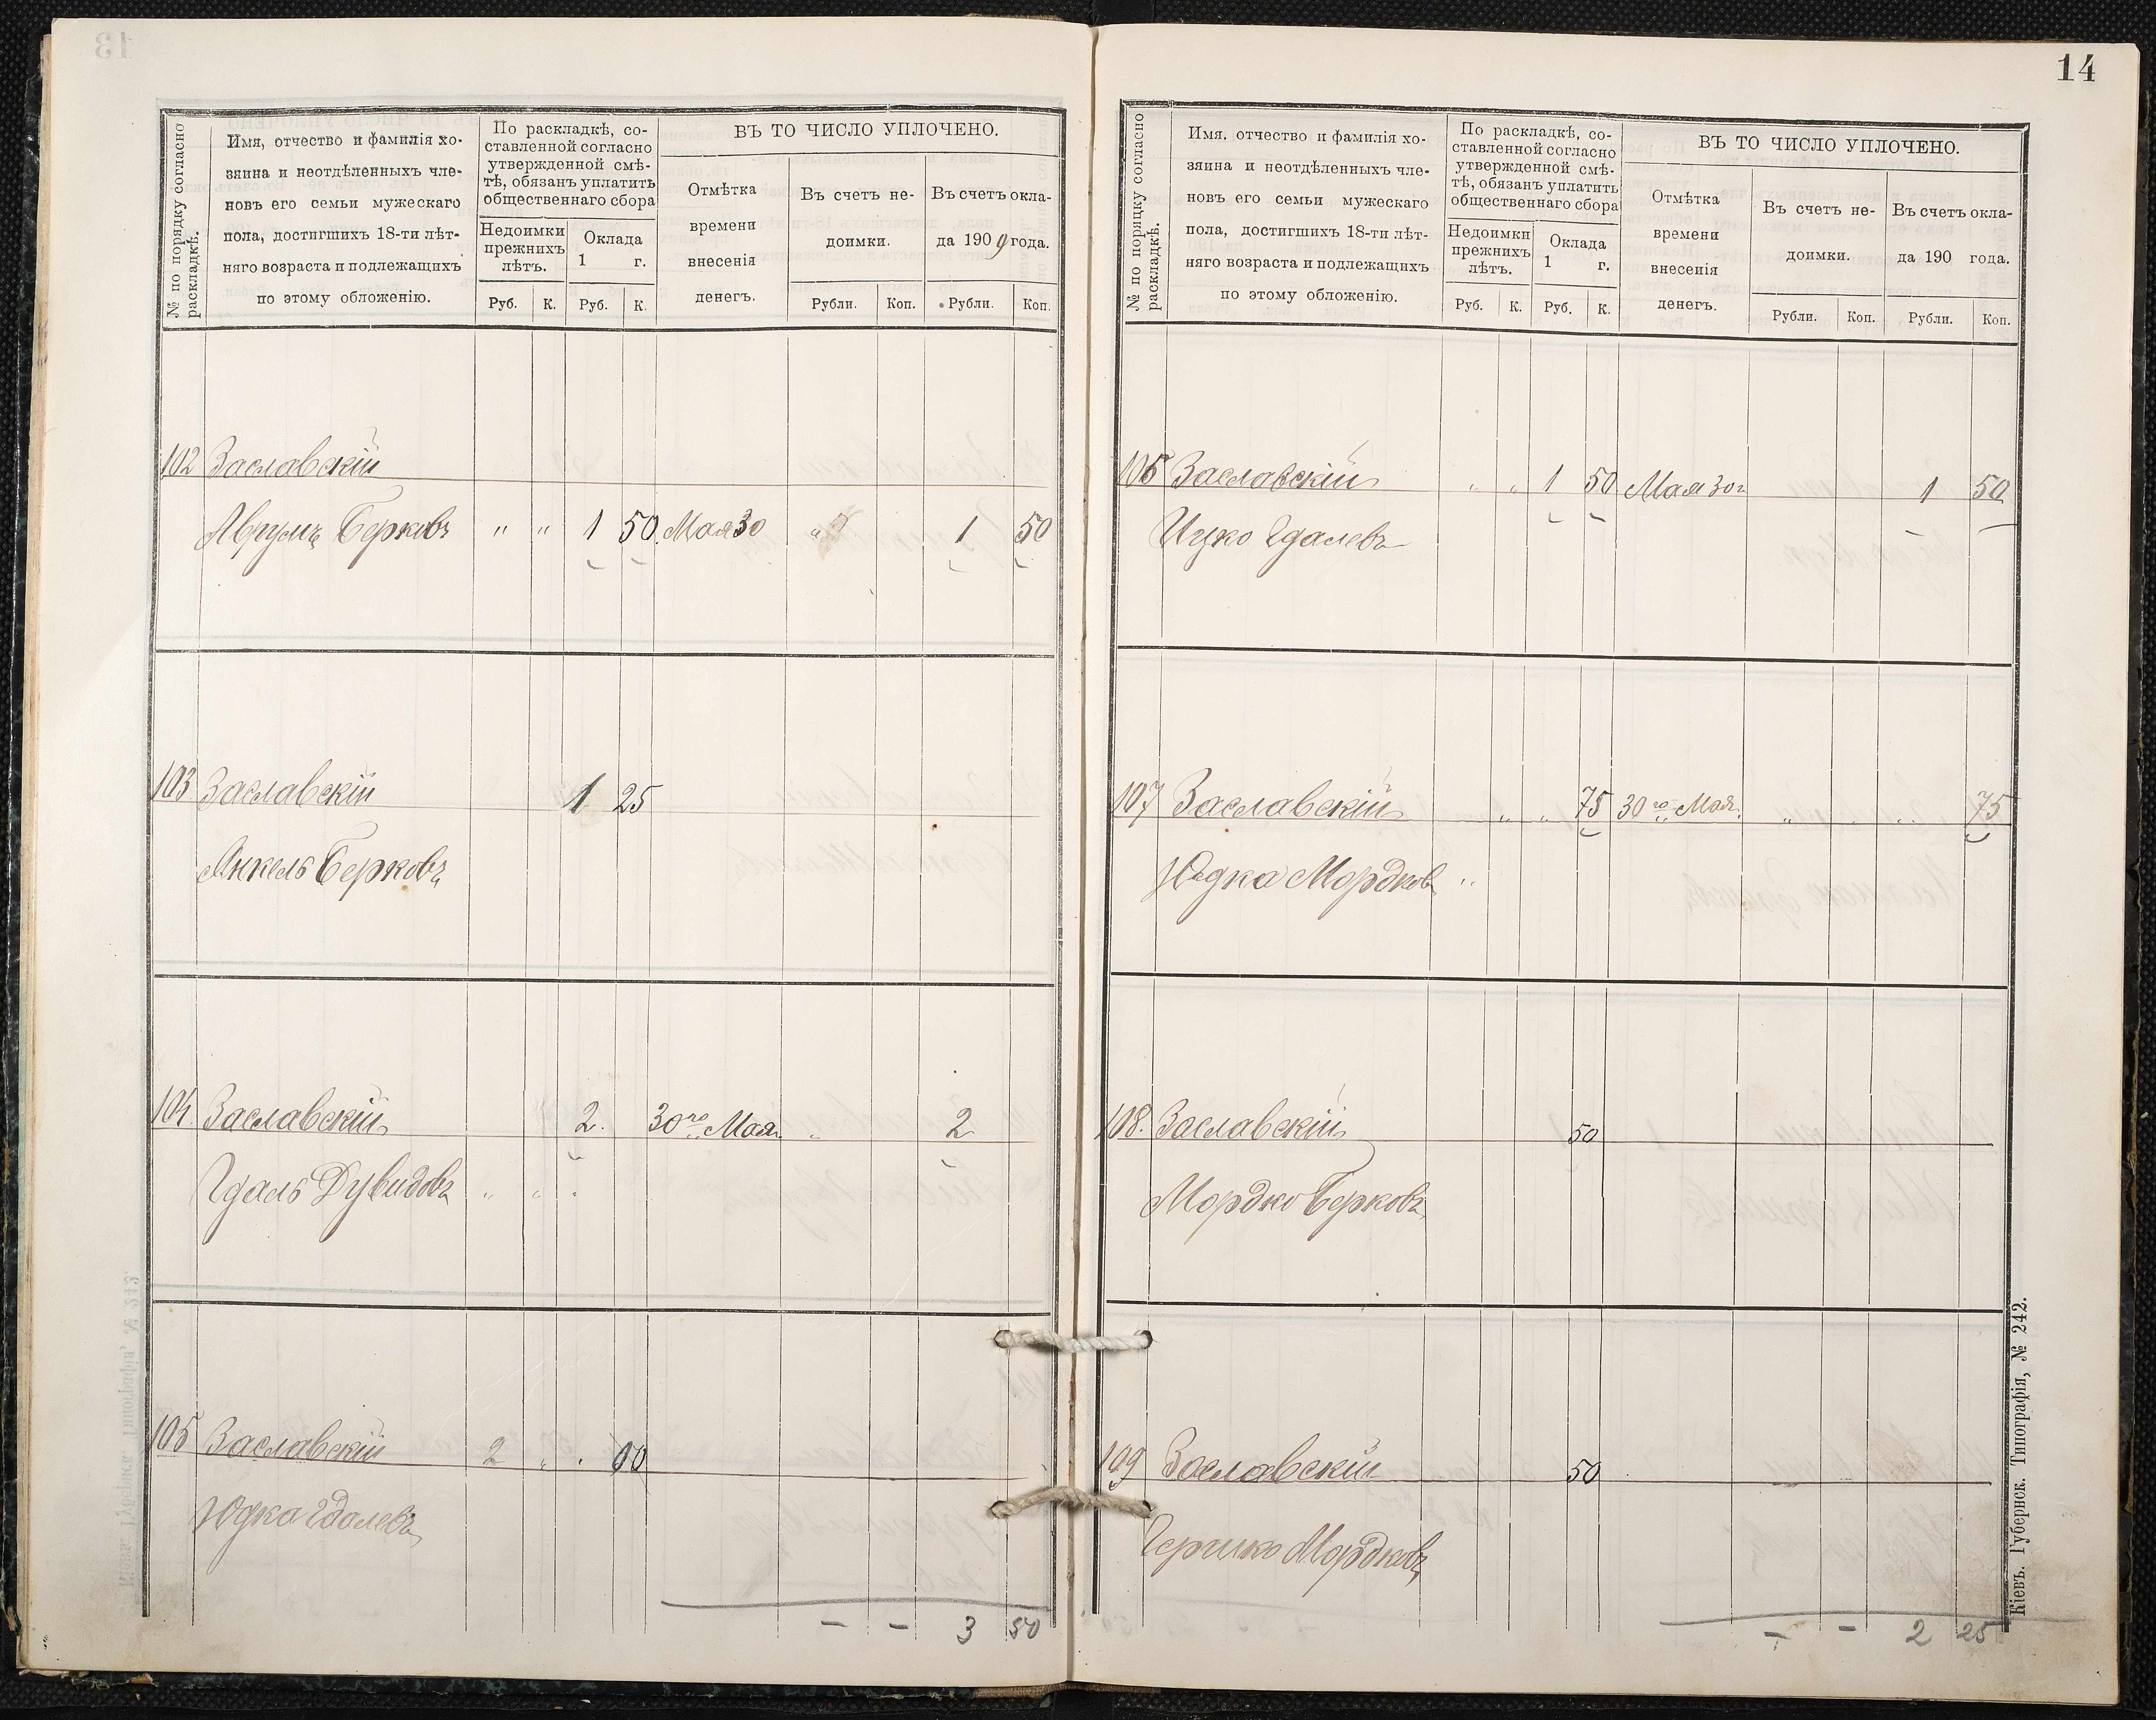 № по порядку согласно
раскладкѣ.
Имя, отчество и фамилія хо-
зяина и неотдѣленныхъ чле-
новъ его семьи мужескаго
пола, достигшихъ 18-ти лѣт-
няго возраста и подлежащихъ
по этому обложенію.
По раскладкѣ, со-
ставленной согласно
утвержденной смѣ-
тѣ, обязанъ уплатить
общественнаго сбора
Недоимки
прежнихъ
лѣтъ.
Оклада
1 г.
Руб. К. Руб. К.
ВЪ ТО ЧИСЛО УПЛОЧЕНО.
Отмѣтка
времени
внесенія
денегъ.
Въ счетъ не-
доимки.
Въ счетъ окла-
да 1909 года.
Рубли. Коп. Рубли. Коп.
102 Заславскій
Аврумъ Берковъ " " 1 50 Мая 30 " 1 50
103 Заславскій 1 25
Янкель Берковъ
104 Заславскій 2. 30го Мая " 2
Гдаль Дувидовъ " "
105 Заславскій 2 "
Юдка Гдалевъ
— — 3 50
14
№ по порядку согласно
раскладкѣ.
Имя. отчество и фамилія хо-
зяина и неотдѣленныхъ чле-
новъ его семьи мужескаго
пола, достигшихъ 18-ти лѣт-
няго возраста и подлежащихъ
по этому обложенію.
По раскладкѣ, со-
ставленной согласно
утвержденной смѣ-
тѣ, обязанъ уплатить
общественнаго сбора
Недоимки
прежнихъ
лѣтъ.
Оклада
1 г.
Руб. К. Руб. К.
ВЪ ТО ЧИСЛО УПЛОЧЕНО.
Отмѣтка
времени
внесенія
денегъ.
Въ счетъ не-
доимки.
Въ счетъ окла-
да 190 года.
Рубли. Коп. Рубли. Коп.
106 Заславскій " " 1 50 Мая 30г 1 50
Ицко Гдалевъ
107 Заславскій " " 75 30го Мая. " " 75
Юдка Мордков "
108. Заславскій 50
Мордко Берковъ
109 Заславскій 50
Гершко Мордковъ
— — 2 25
Кіевъ. Губернск. Типографія, № 242.